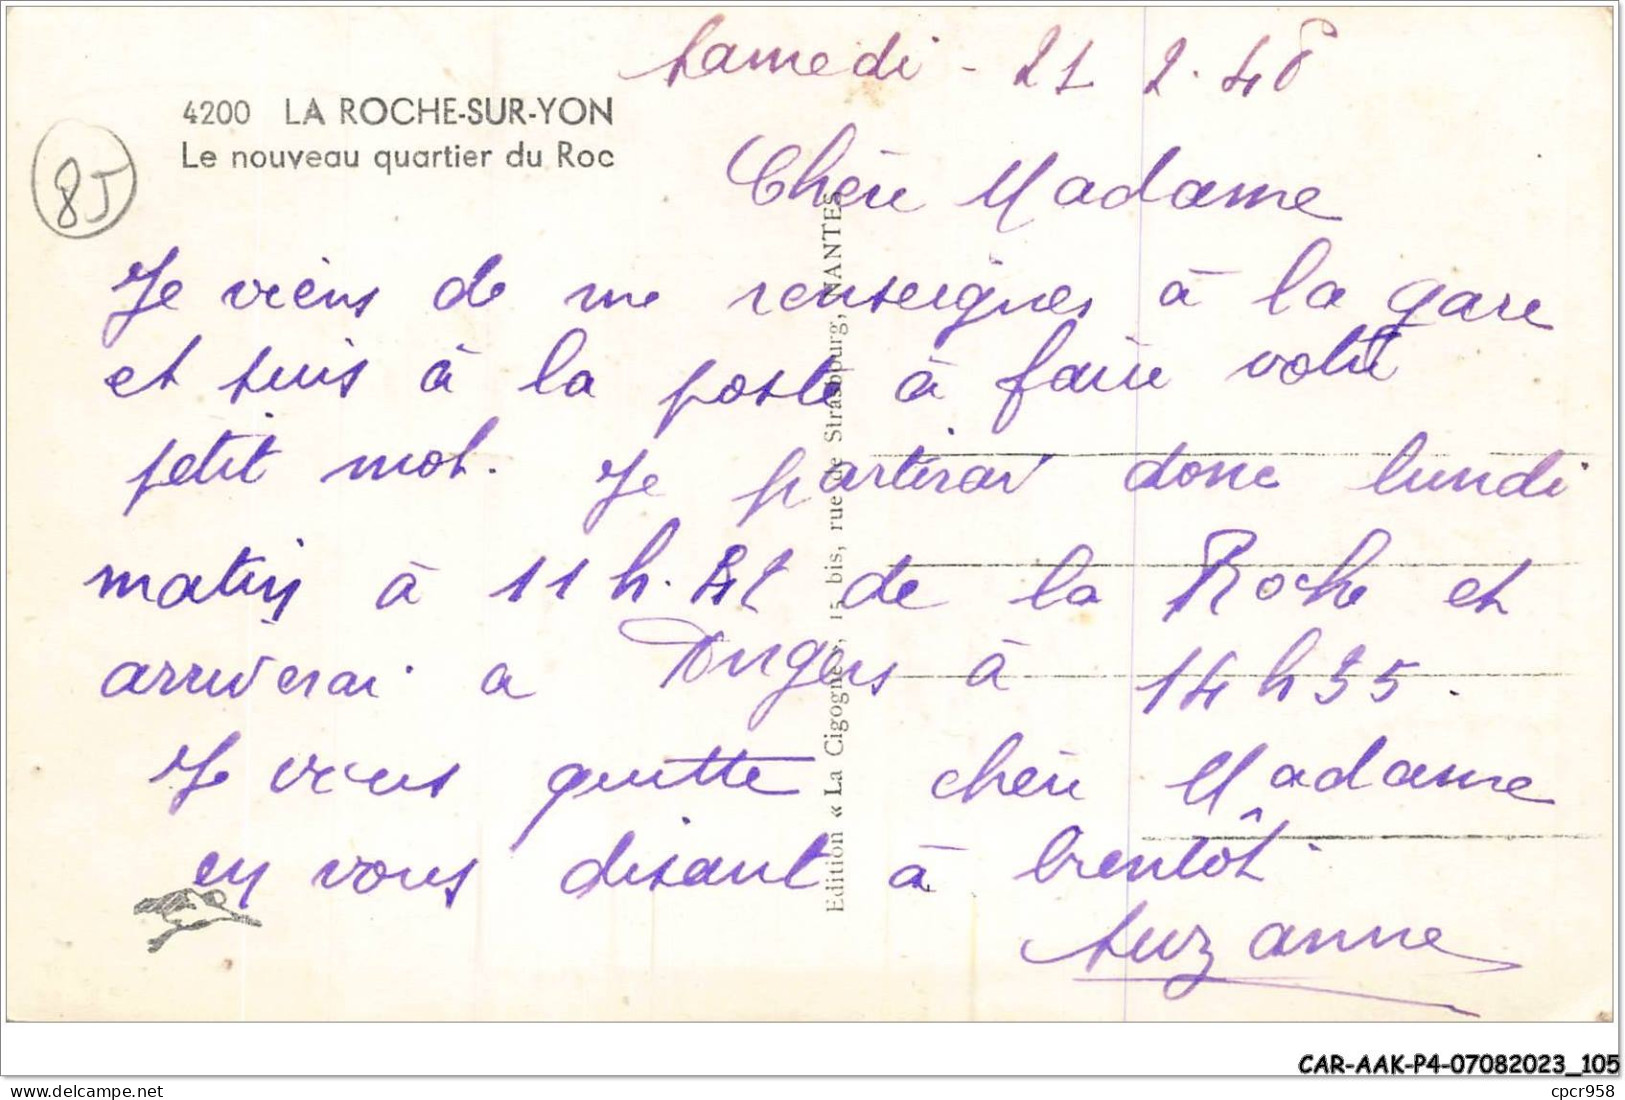 Samedi - 21 2.48
4200 LA ROCHE-SUR-YON
Le nouveau quartier du Roc
85
Chère Madame
Je viens de me renseigner à la gare
et suis à la poste à faire votre
petit mot. Je partirai donc lundi
matin à 11 h. de la Roche et
arriverai a Angers à 14 h 35.
Je vous quitte chère Madame
en vous disant à bientôt.
Suzanne
Edition « La Cigogne », 15 bis, rue de Strasbourg, NANTES
CAR-AAK-P4-07082023_105
cpcr958